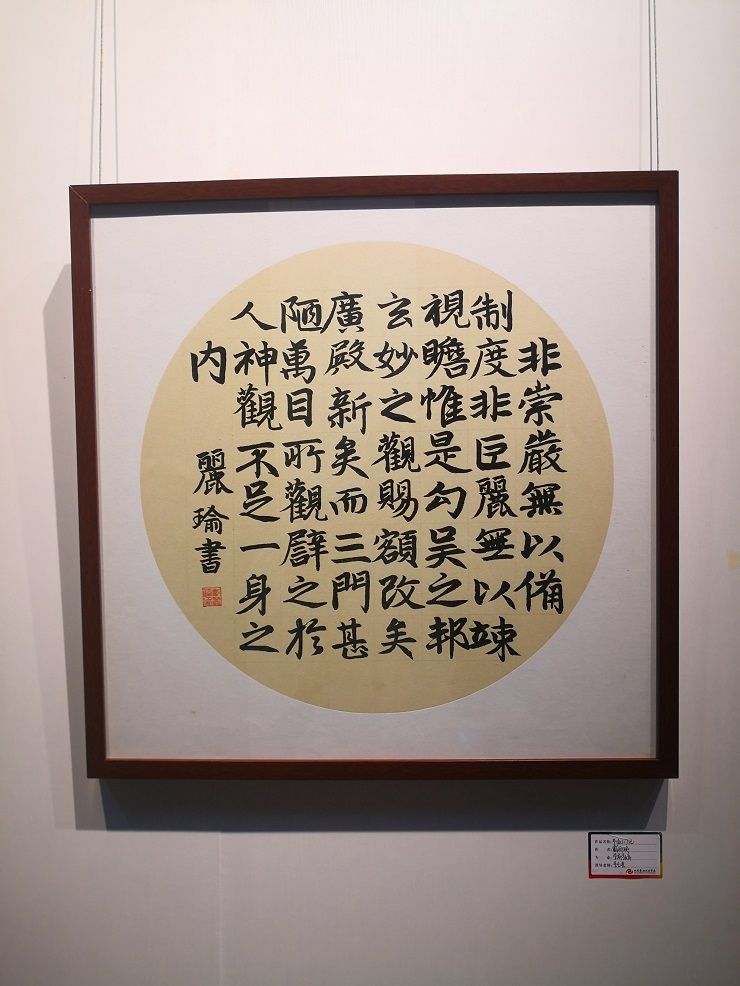 非崇嚴無以備
制度非巨麗無以竦
視瞻惟是勾吴之邦
玄妙之觀賜額改矣
廣殿新矣而三門甚
陋萬目所觀譬之於
人神觀不足一身之
内
麗瑜書
作品名称:
作 者:
指导老师: